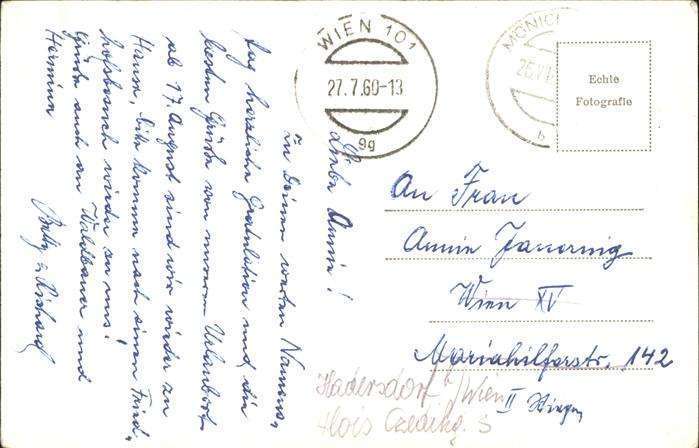 Liebe Annie!
Zu Deinem werten Namens-
tag herzliche Gratulation und die
besten Grüße von unserem Urlaubsort
ab 17. August sind wir wieder zu
Hause, bitte komme nach einem Fried-
hofsbesuch wieder zu uns!
Grüße auch an Waldbauer und
Hermine
Betty u. Richard
WIEN 101
27.7.60-13
9g
MÖNICH
26.VII
b
Echte
Fotografie
An Frau
Annie
Wien XV
Mariahilferstr. 142
Hadersdorf b/Wien
II
Alois 3